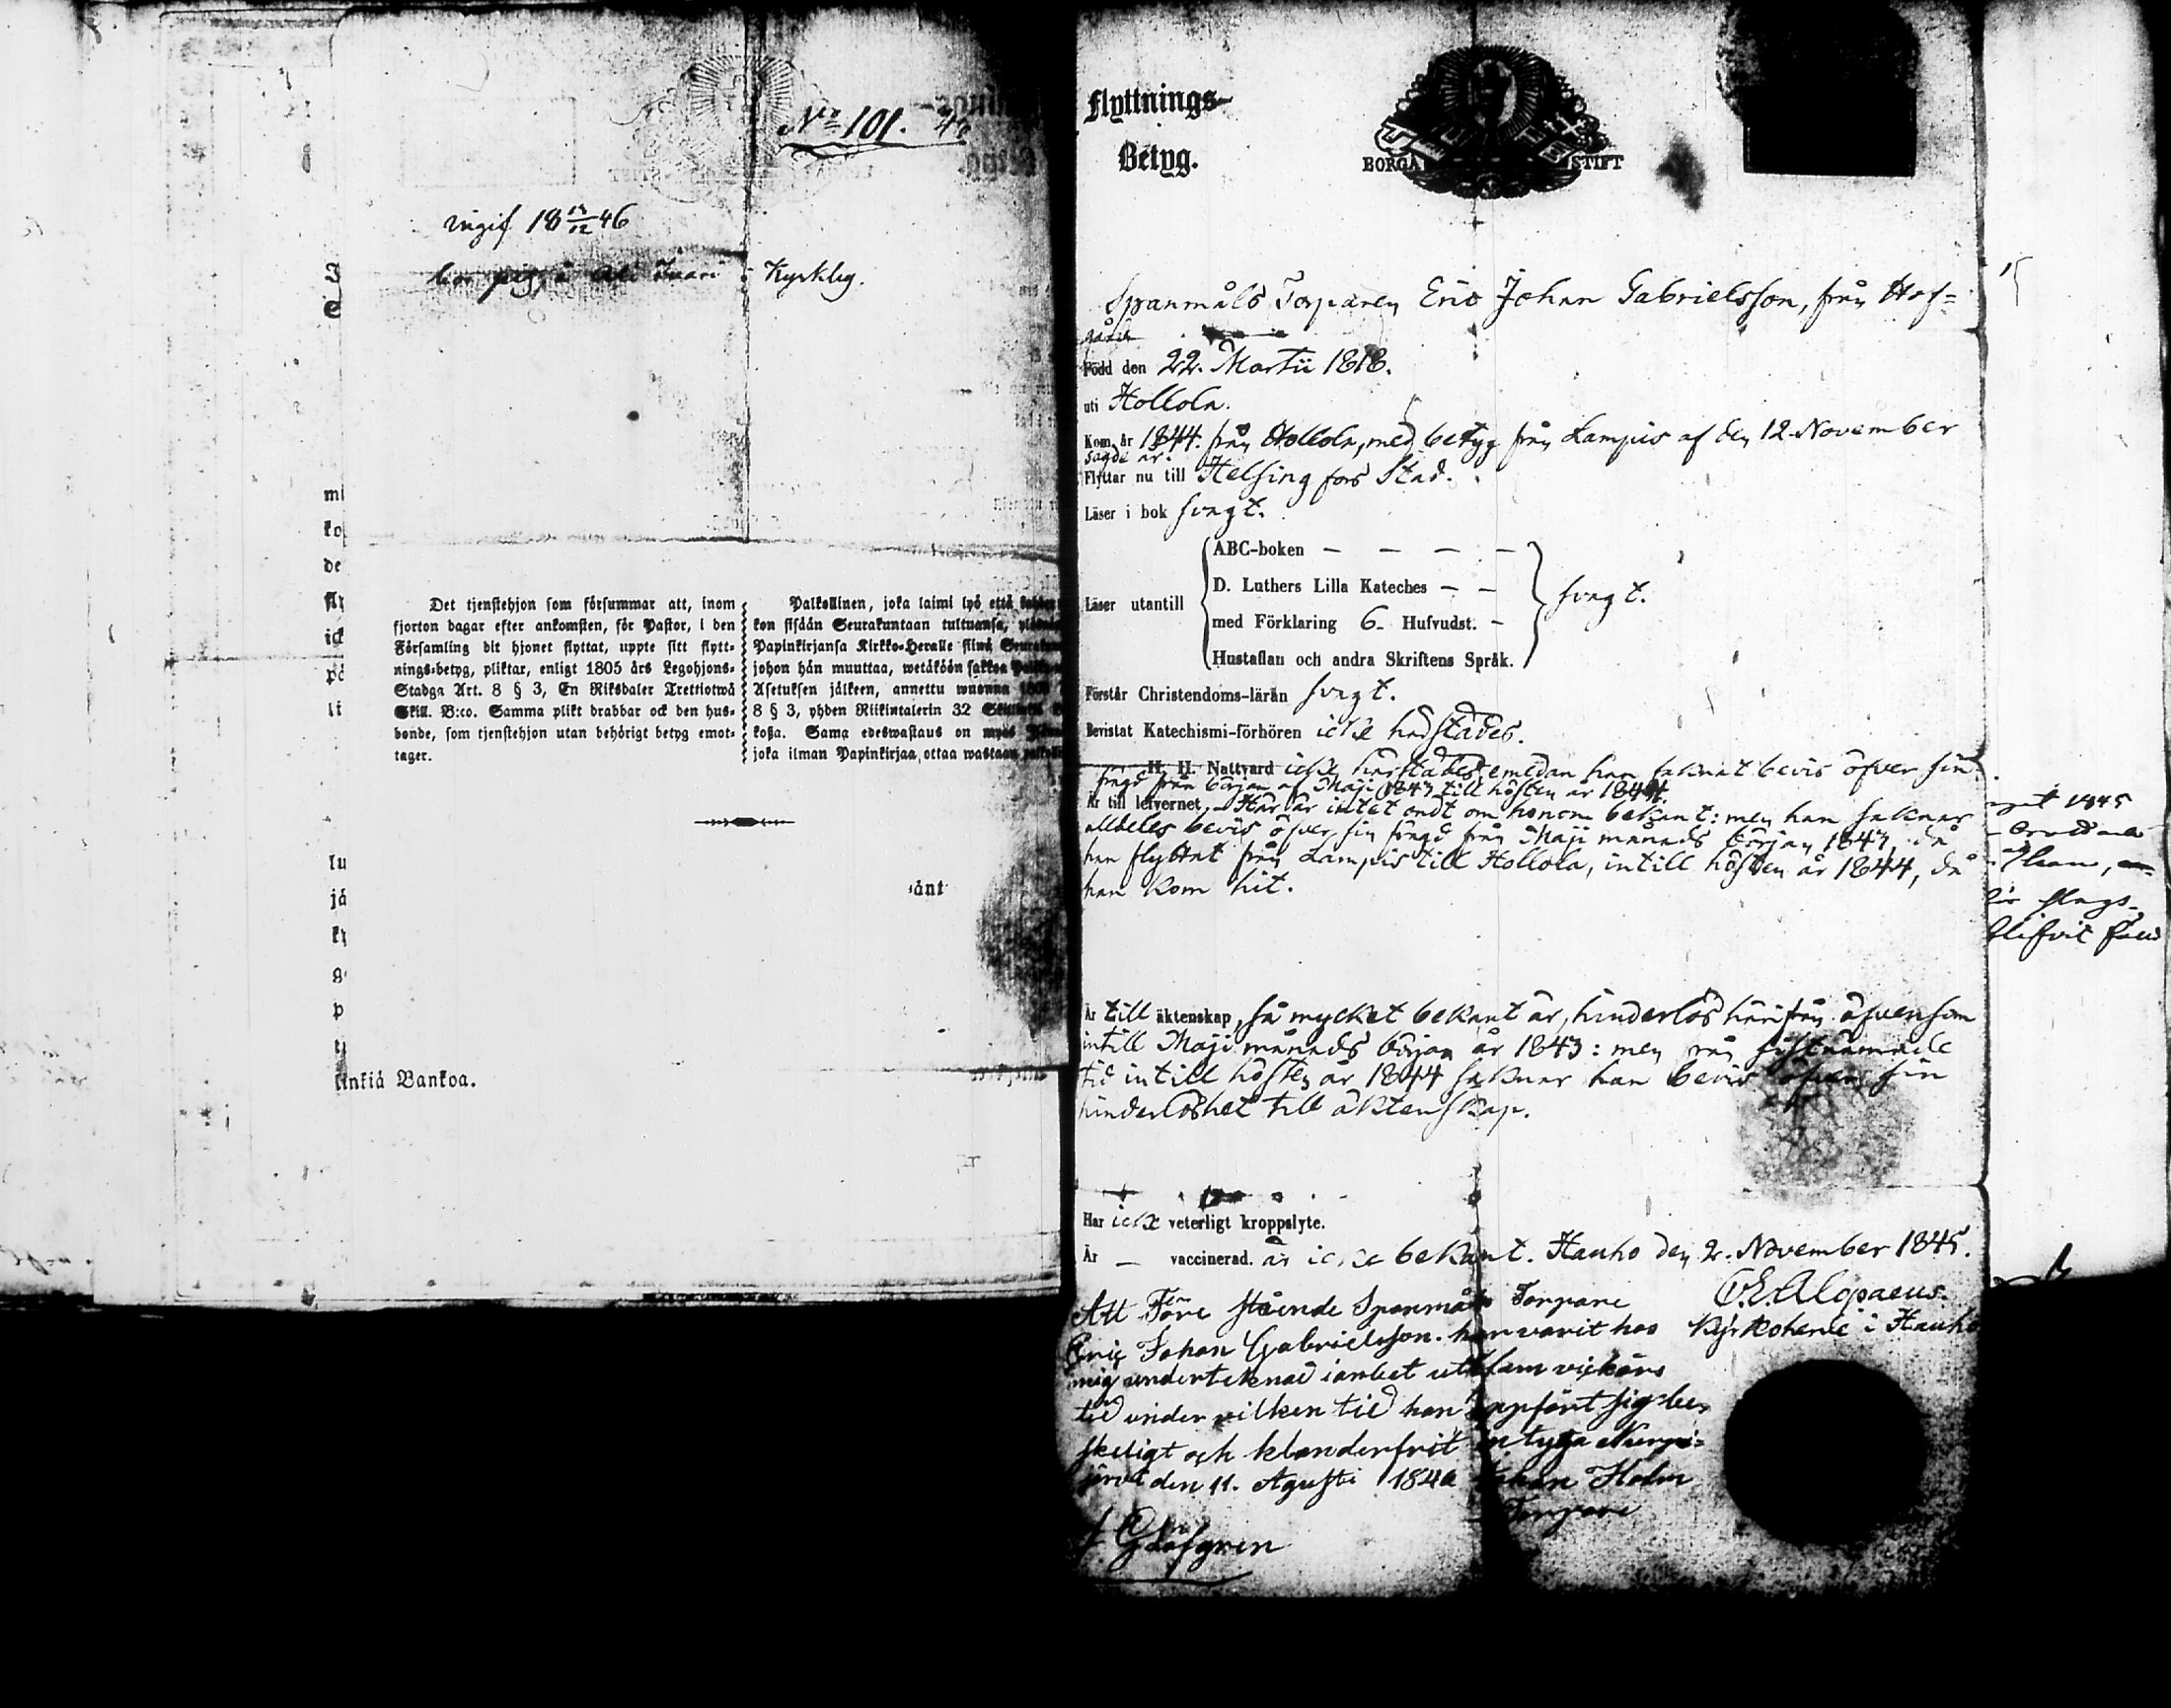 No 101.
ingif 18 14/12 46
Kyrklig.
Det tjenstehjon som försummar att, inom
fjorton dagar efter ankomsten, för Pastor, i den
Församling dit hjonet flyttat, uppte sitt flytt-
nings-betyg, pliktar, enligt 1805 års Legohjons-
Stadga Art. 8 § 3, En Riksdaler Trettiotwå
Skill. B:co. Samma plikt drabbar ock den hus-
bonde, som tjenstehjon utan behörigt betyg emot-
tager.
Palkollinen, joka laimi lyö että
kon sisään Seurakuntaan tultuansa,
Papinkirjansa Kirkko-Heralle siinä
johon hän muuttaa, wetäköön sakkoa
Asetuksen jälkeen, annettu wuonna
8 § 3, yhden Riikintalerin 32
koßa. Sama edeswastaus on myös
joka ilman Papinkirjaa, ottaa wastaan
änt
inkiä Bankoa.
Flyttnings-
Betyg.
BORGÅ STIFT
Spanmåls Torparen Eric Johan Gabrielsson, från Hof-
gård
Född den 22. Martii 1818.
uti Hollola.
Kom år 1844. från Hollola, med betyg från Lampis af den 12 November
sagde år.
Flyttar nu till Helsingfors Stad.
Läser i bok svagt.
Läser utantill
ABC-boken — — — —
D. Luthers Lilla Kateches — —
med Förklaring 6. Hufvudst. —
Hustaflan och andra Skriftens Språk.
svagt.
Förstår Christendoms-lärän svagt.
Bevistat Katechismi-förhören icke härstädes.
H. H. Nattvard icke härstädes, emedan han saknat bevis öfver sin
frägd från början af Maji 1843 till hösten år 1844.
Är till lefvernet, – Här är intet ondt om honom bekant: men han saknar
alldeles bevis öfver sin frägd från Maji månads början 1843, då
han flyttat från Lampis till Hollola, intill hösten år 1844, då
han kom hit.
Är till äktenskap, så mycket bekant är, hinderlös härifrån äfvensom
intill Maji månads början år 1843: men från sistnämnde
tid intill hösten år 1844 saknar han bevis öfver sin
hinderlöshet till äktenskap.
Har icke veterligt kroppslyte.
Är — vaccinerad. är icke bekant. Hauho den 2. November 1845.
Alopaeus.
Kyrkoherde i Hauho
Att Före stående Spanmåls Torpare
Eric Johan Gabrielsson. har varit hos
mig underteknad i arbet
tid under vilken tid han uppfört sig be-
skeligt och klanderfrit intyga Nurmi-
järvi den 11. Agusti 1846 Johan Holm
Torpare
Glöfgren